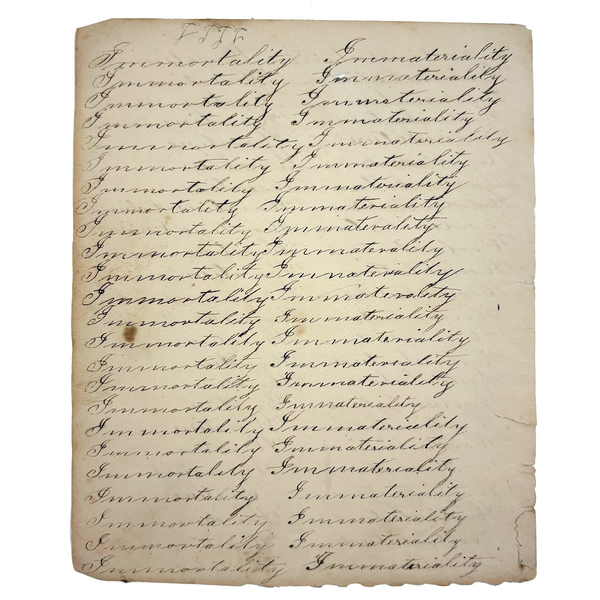 I I I I
Immortality Immateriality
Immortality Immateriality
Immortality Immateriality
Immortality Immateriality
Immortality Immateriality
Immortality Immateriality
Immortality Immateriality
Immortality Immateriality
Immortality Immaterality
Immortality Immaterality
Immortality Immaterality
Immortality Immaterality
Immortality Immateriality
Immortality Immateriality
Immortality Immateriality
Immortality Immateriality
Immortality Immateriality
Immortality Immateriality
Immortality Immateriality
Immortality Immateriality
Immortality Immateriality
Immortality Immateriality
Immortality Immateriality
Immortality Immateriality